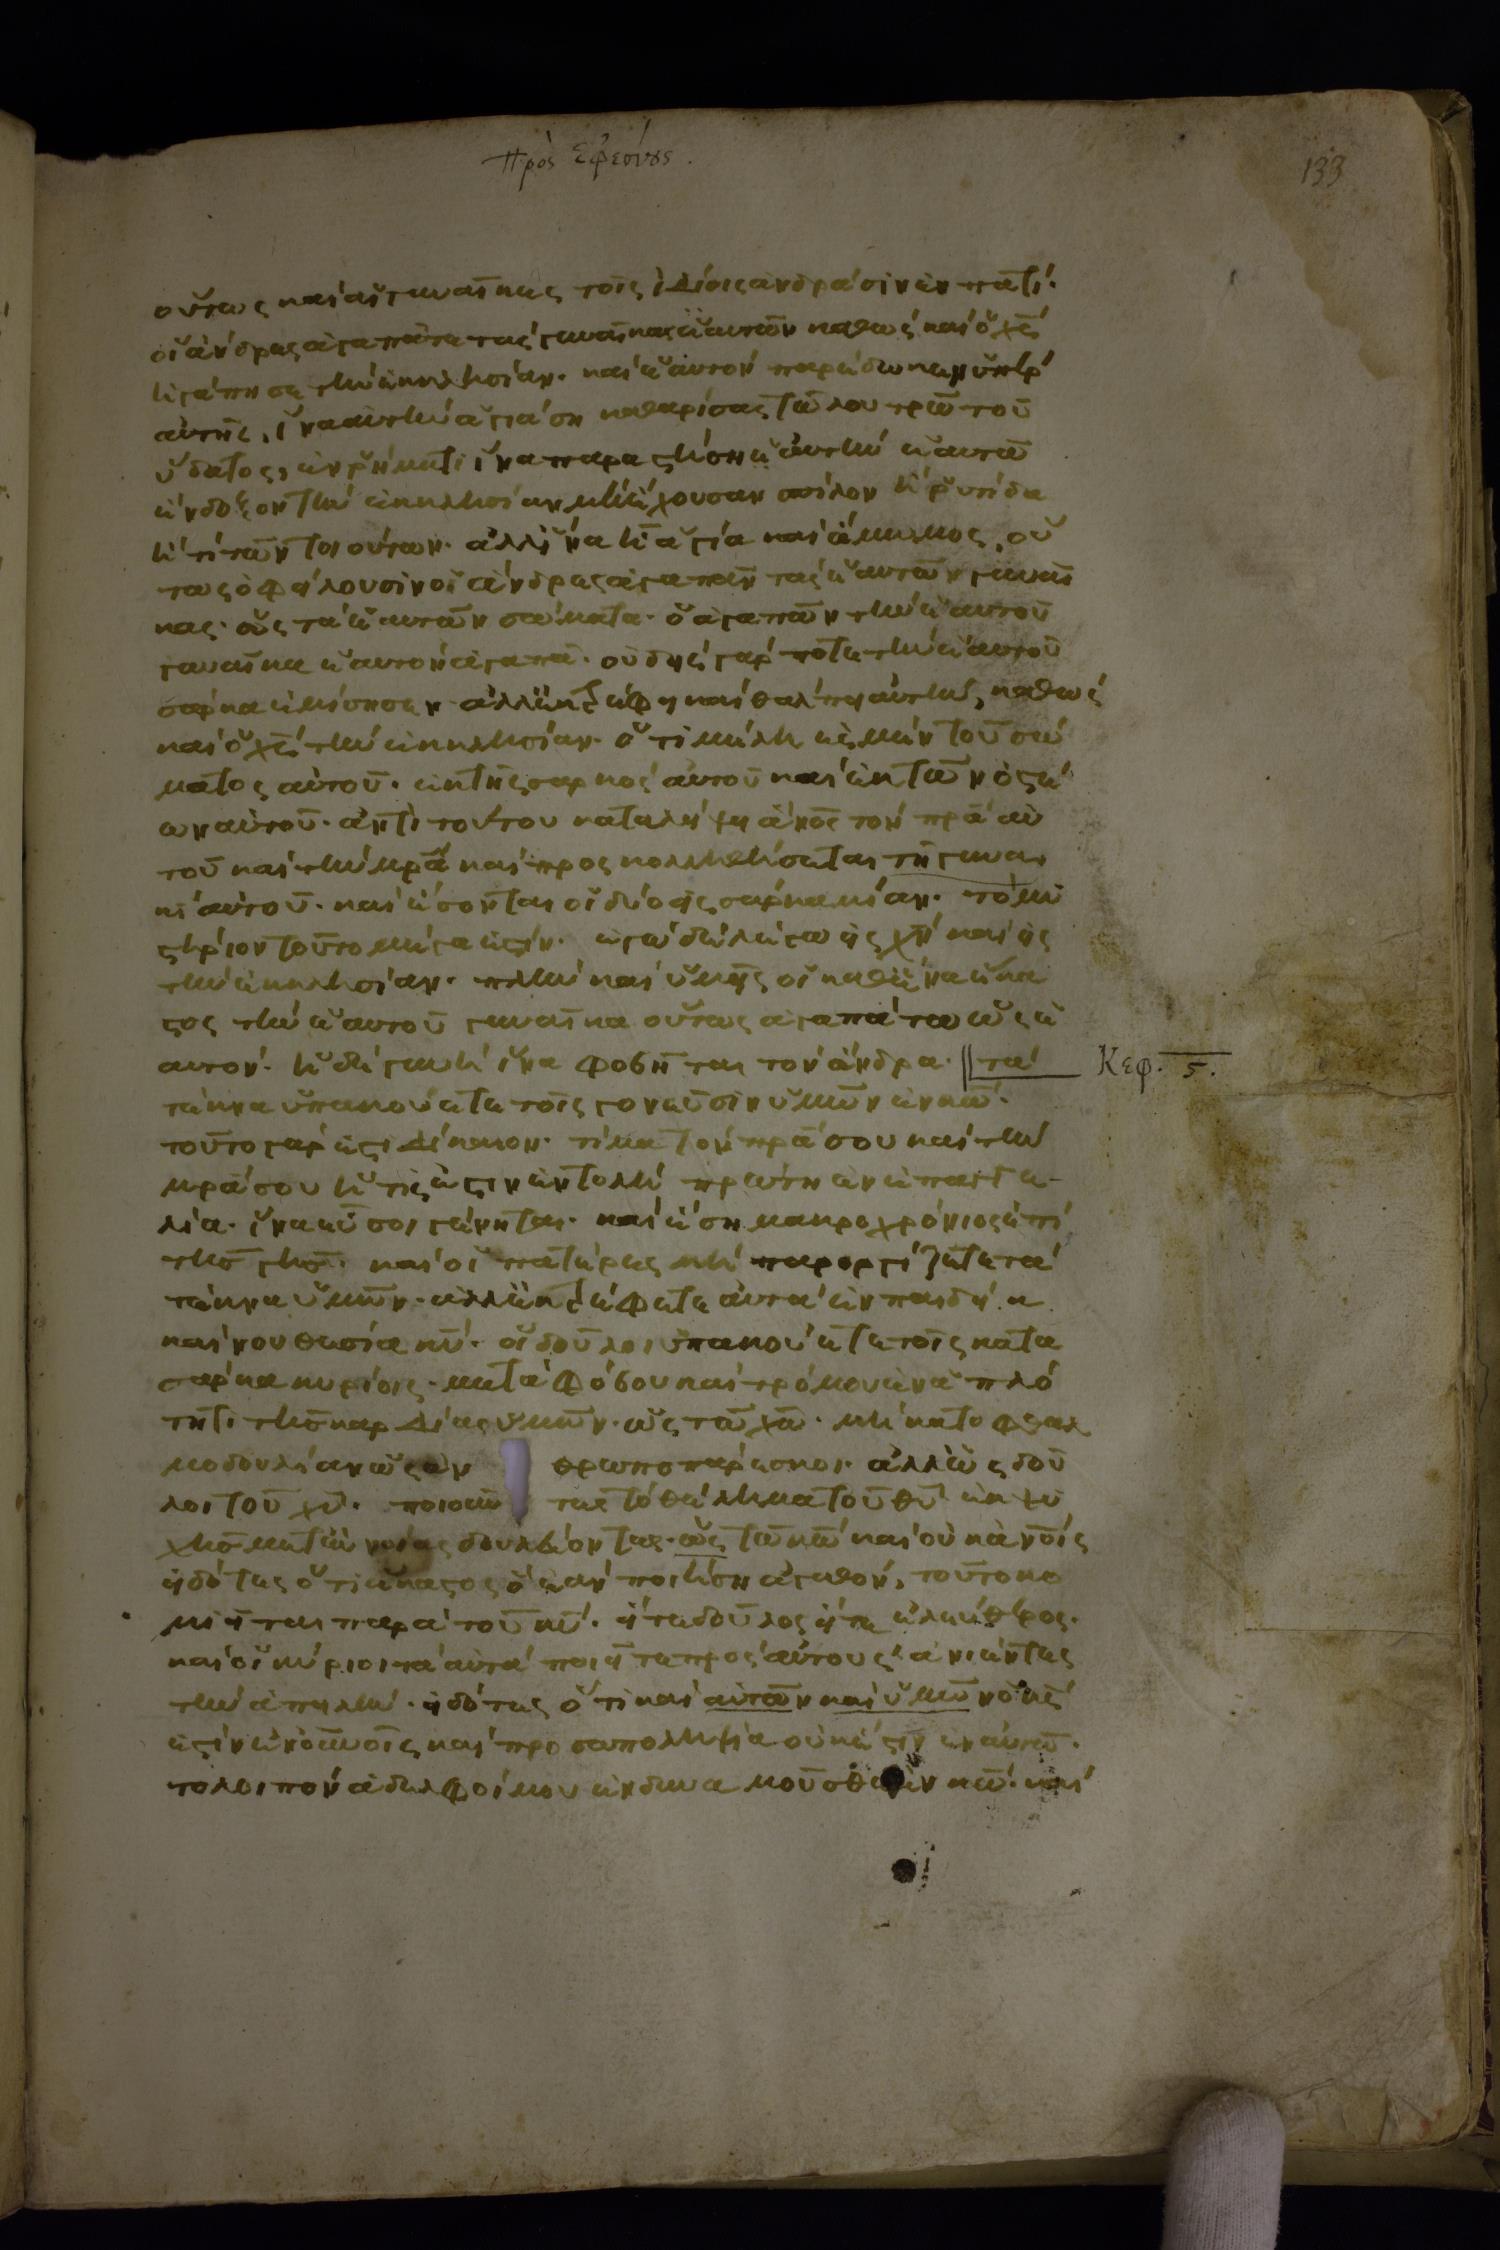 Πρὸς Ἐφεσίους.
133
οὕτως καὶ αἱ γυναῖκες τοῖς ἰδίοις ἀνδράσιν ἐν παντί·
οἱ ἄνδρες ἀγαπᾶτε τὰς γυναῖκας ἑαυτῶν καθὼς καὶ ὁ χς
ἠγάπησε τὴν ἐκκλησίαν· καὶ ἑαυτὸν παρέδωκεν ὑπὲρ
αὐτῆς, ἵνα αὐτὴν ἁγιάση καθαρίσας τῶ λουτρῶ τοῦ
ὕδατος, ἐν ῥήματι ἵνα παραστήση αὐτὴν ἑαυτῶ
ἔνδοξον τὴν ἐκκλησίαν μὴ ἔχουσαν σπίλον ἢ ῥυτίδα
ἤ τι τῶν τοιούτων· ἀλλ' ἵνα ἦ ἁγία καὶ ἄμωμος, οὕ
τως ὀφείλουσιν οἱ ἄνδρες ἀγαπᾶν τὰς ἑαυτῶν γυναῖ
κας· ὡς τὰ ἑαυτῶν σώματα· ὁ ἀγαπῶν τὴν ἑαυτοῦ
γυναῖκα ἑαυτὸν ἀγαπᾶ· οὐδεὶς γάρ ποτε τὴν ἑαυτοῦ
σάρκα ἐμίσησεν· ἀλλ' ἐκτρέφει καὶ θάλπει αὐτήν, καθὼς
καὶ ὁ χς τὴν ἐκκλησίαν· ὅτι μέλη ἐσμὲν τοῦ σώ
ματος αὐτοῦ· ἐκ τῆς σαρκὸς αὐτοῦ καὶ ἐκ τῶν ὀστέ
ων αὐτοῦ· ἀντὶ τούτου καταλείψει ἄνος τὸν πρα αὐ
τοῦ καὶ τὴν μρα καὶ προσκολληθήσεται τῆ γυναι
κὶ αὐτοῦ· καὶ ἔσονται οἱ δύο εἰς σάρκα μίαν· τὸ μυ
στήριον τοῦτο μέγα ἐστίν· ἐγὼ δὲ λέγω εἰς χν καὶ εἰς
τὴν ἐκκλησίαν· πλὴν καὶ ὑμεῖς οἱ καθ' ἕνα ἕκα
στος τὴν ἑαυτοῦ γυναῖκα οὕτως ἀγαπάτω ὡς ἑ
αυτόν· ἡ δὲ γυνὴ ἵνα φοβῆται τὸν ἄνδρα· τὰ
Κεφ. 5.
τέκνα ὑπακούετε τοῖς γονεῦσιν ὑμῶν ἐν κω·
τοῦτο γάρ ἐστι δίκαιον· τίμα τὸν πρα σου καὶ τὴν
μρα σου ἥτις ἐστὶν ἐντολὴ πρώτη ἐν ἐπαγγε-
λία· ἵνα εὖ σοι γένηται· καὶ ἔση μακροχρόνιος ἐπὶ
τῆς γῆς· καὶ οἱ πατέρες μὴ παροργίζετε τὰ
τέκνα ὑμῶν· ἀλλ' ἐκτρέφετε αὐτὰ ἐν παιδεία
καὶ νουθεσία κυ· οἱ δοῦλοι ὑπακούετε τοῖς κατὰ
σάρκα κυρίοις· μετὰ φόβου καὶ τρόμου ἐν ἁπλό
τητι τῆς καρδίας ὑμῶν· ὡς τῶ χω· μὴ κατ' ὀφθαλ
μοδουλίαν ὡς ἀν θρωπάρεσκοι· ἀλλ' ὡς δοῦ
λοι τοῦ χυ· ποιοῦν τες τὸ θέλημα τοῦ θυ ἐκ ψυ
χῆς μετ' εὐνοίας δουλεύοντες· ὡς τῶ κω καὶ οὐκ ἀνοις
εἰδότες ὅτι ἕκαστος ὃ ἐὰν ποιήση ἀγαθόν, τοῦτο κο
μιεῖται παρὰ τοῦ κυ· εἴτε δοῦλος εἴτε ἐλεύθερος·
καὶ οἱ κύριοι τὰ αὐτὰ ποιεῖτε πρὸς αὐτούς· ἀνιέντες
τὴν ἀπειλήν· εἰδότες ὅτι καὶ αὐτῶν καὶ ὑμῶν ὁ κς
ἐστιν ἐν οὐνοῖς καὶ προσωποληψία οὐκ ἔστιν ἐν αὐτῶ·
τὸ λοιπὸν ἀδελφοί μου ἐνδυναμοῦσθε ἐν κω· καὶ